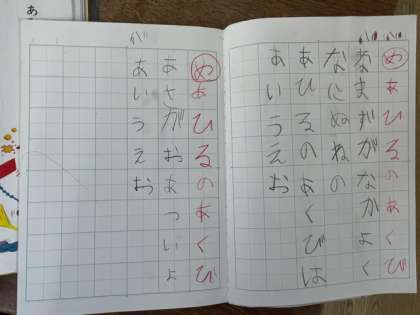 めあひるのあくび
なまずがなかよく
なにぬねの
あひるのあくびは
あいうえお
めあひるのあくび
あさがおあついよ
あいうえお